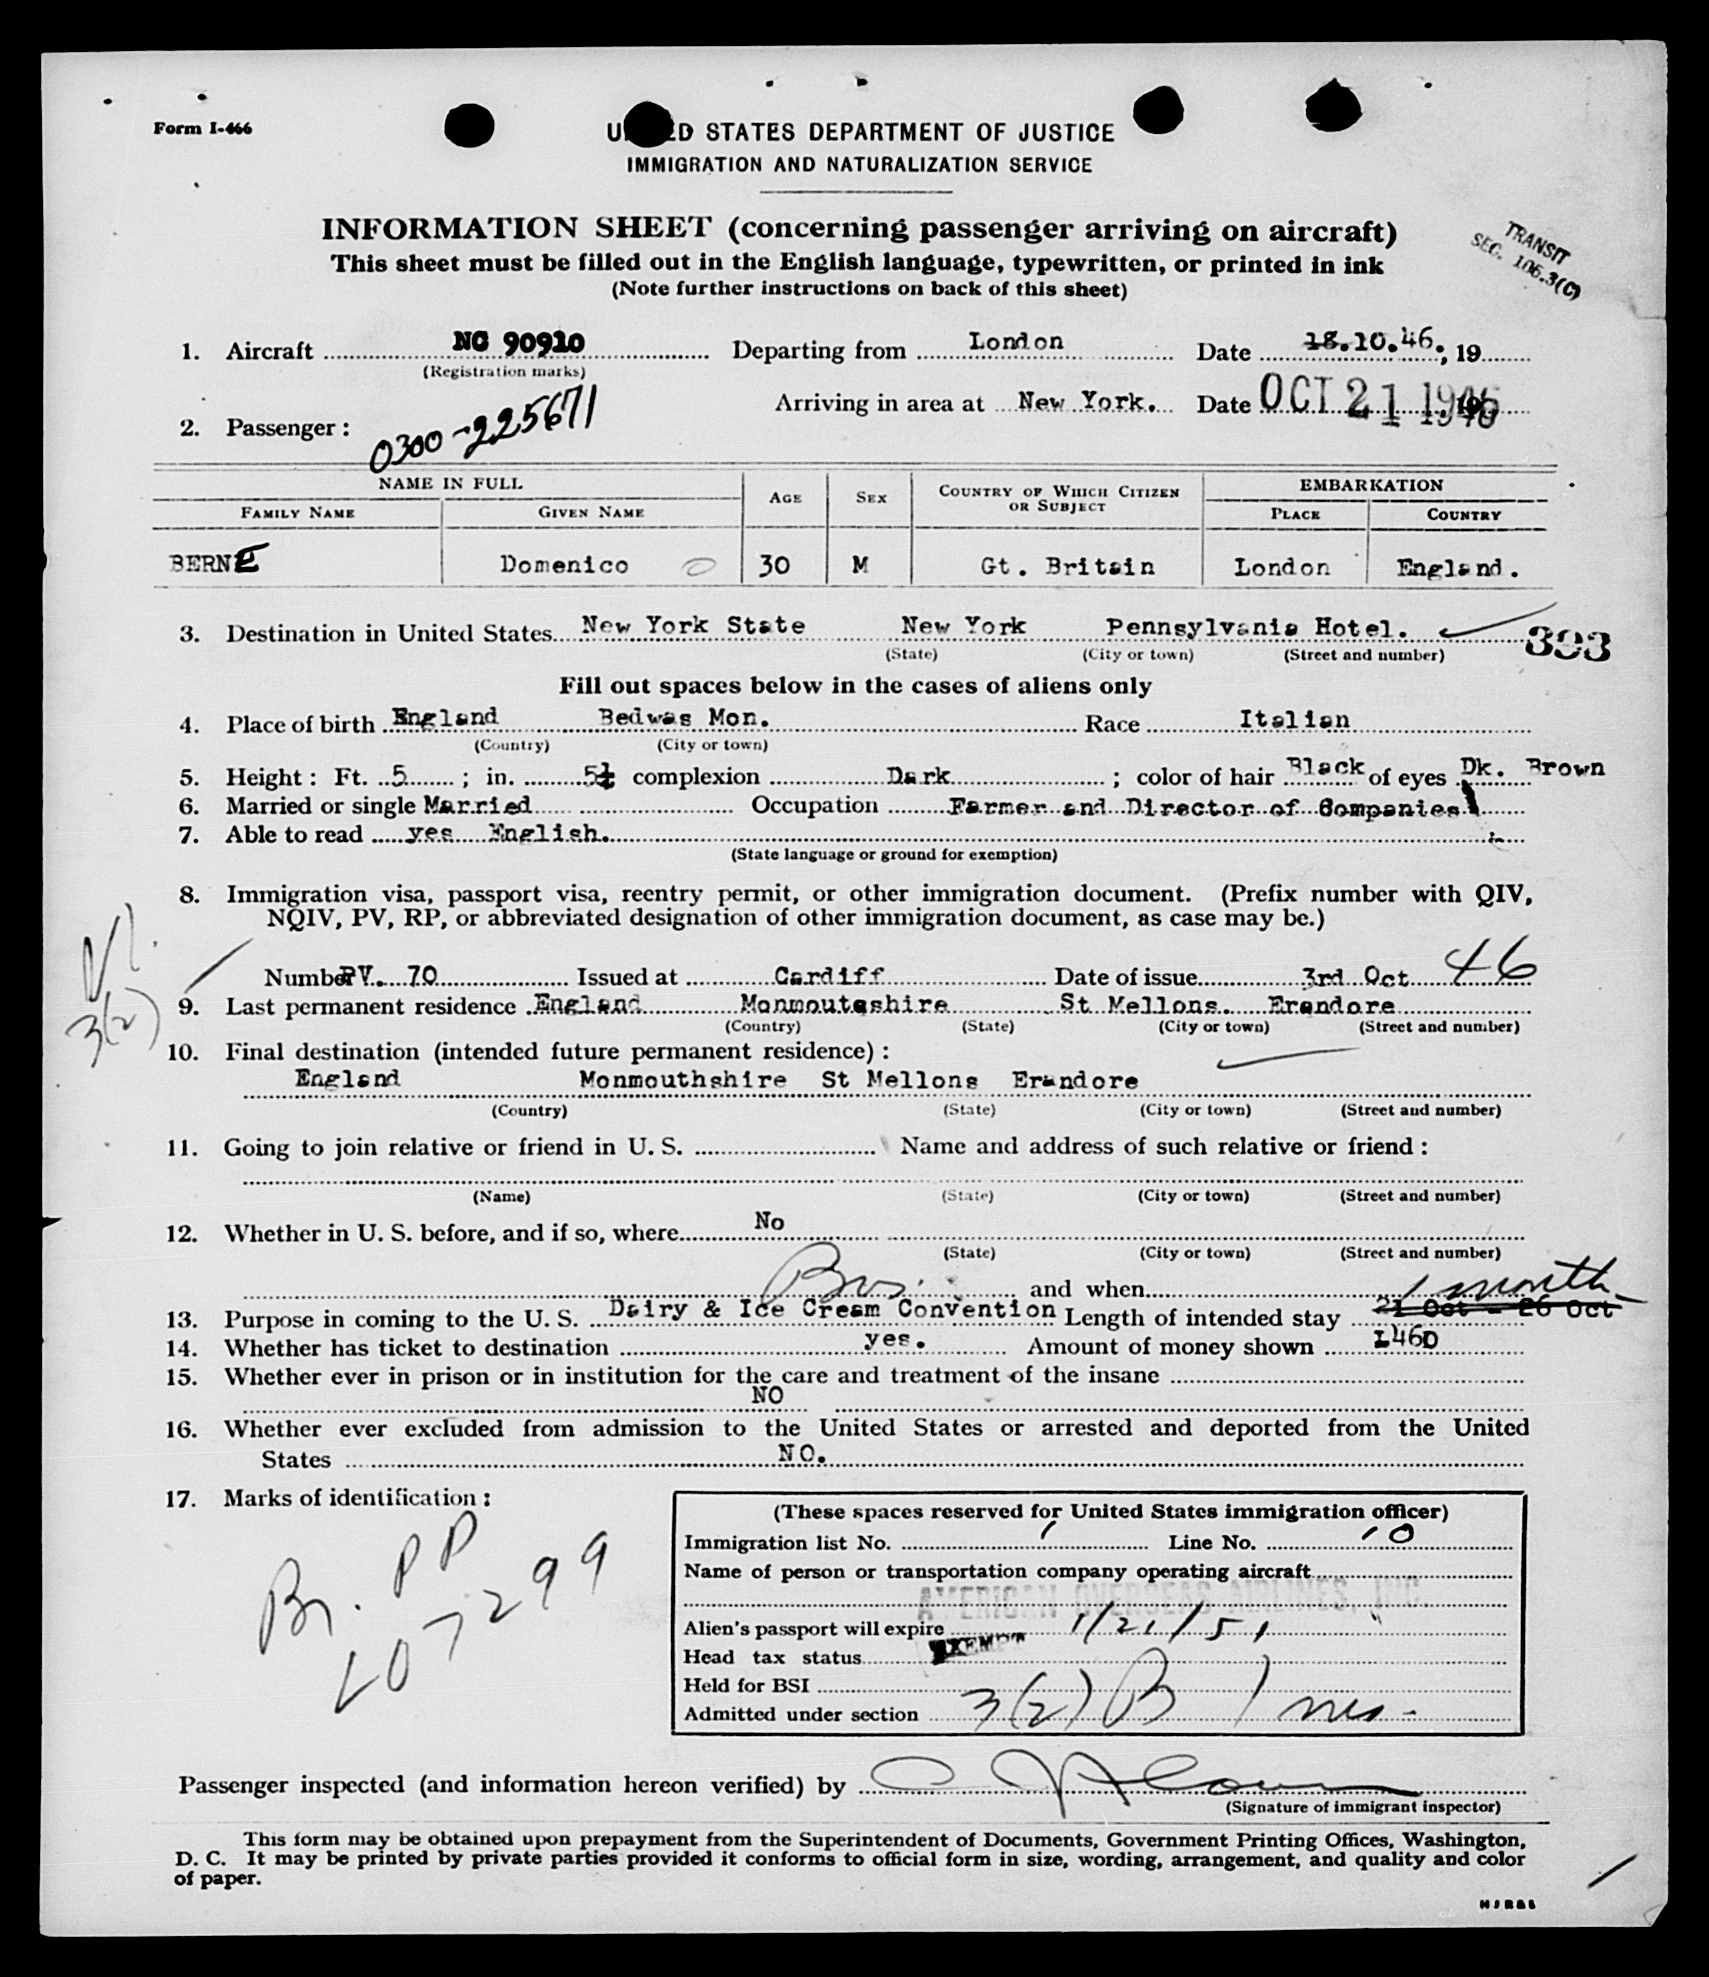 Form I-466
UNITED STATES DEPARTMENT OF JUSTICE
IMMIGRATION AND NATURALIZATION SERVICE
INFORMATION SHEET (concerning passenger arriving on aircraft)
This sheet must be filled out in the English language, typewritten, or printed in ink
(Note further instructions on back of this sheet)
TRANSIT
SEC. 106.3(C)
1. Aircraft NC 90910 Departing from London Date 18.10.46. , 19
(Registration marks)
Arriving in area at New York. Date OCT 21 1946
2. Passenger :
0300-225671
NAME IN FULL AGE SEX COUNTRY OF WHICH CITIZEN OR SUBJECT EMBARKATION
FAMILY NAME GIVEN NAME PLACE COUNTRY
BERNE Domenico 30 M Gt. Britain London England.
3. Destination in United States New York State New York Pennsylvania Hotel. 393
(State) (City or town) (Street and number)
Fill out spaces below in the cases of aliens only
4. Place of birth England Bedwas Mon. Race Italian
(Country) (City or town)
5. Height : Ft. 5 ; in. 5½ complexion Dark ; color of hair Black of eyes Dk. Brown
6. Married or single Married Occupation Farmer and Director of Companies
7. Able to read yes English.
(State language or ground for exemption)
8. Immigration visa, passport visa, reentry permit, or other immigration document. (Prefix number with QIV,
NQIV, PV, RP, or abbreviated designation of other immigration document, as case may be.)
3(2)
Number PV. 70 Issued at Cardiff Date of issue 3rd Oct 46
9. Last permanent residence England Monmouteshire St Mellons. Erandore
(Country) (State) (City or town) (Street and number)
10. Final destination (intended future permanent residence) :
England Monmouthshire St Mellons Erandore
(Country) (State) (City or town) (Street and number)
11. Going to join relative or friend in U. S. Name and address of such relative or friend :
(Name) (State) (City or town) (Street and number)
12. Whether in U. S. before, and if so, where No
(State) (City or town) (Street and number)
Bus. and when 1 month
13. Purpose in coming to the U. S. Dairy & Ice Cream Convention Length of intended stay 21 Oct - 26 Oct
14. Whether has ticket to destination yes. Amount of money shown £460
15. Whether ever in prison or in institution for the care and treatment of the insane
NO
16. Whether ever excluded from admission to the United States or arrested and deported from the United
States NO.
17. Marks of identification :
Br. PP
L07299
(These spaces reserved for United States immigration officer)
Immigration list No. 1 Line No. 10
Name of person or transportation company operating aircraft
AMERICAN OVERSEAS AIRLINES, INC.
Alien's passport will expire 1/21/51
Head tax status EXEMPT
Held for BSI
Admitted under section 3(2) B 1 mo.
Passenger inspected (and information hereon verified) by
(Signature of immigrant inspector)
This form may be obtained upon prepayment from the Superintendent of Documents, Government Printing Offices, Washington,
D. C. It may be printed by private parties provided it conforms to official form in size, wording, arrangement, and quality and color
of paper.